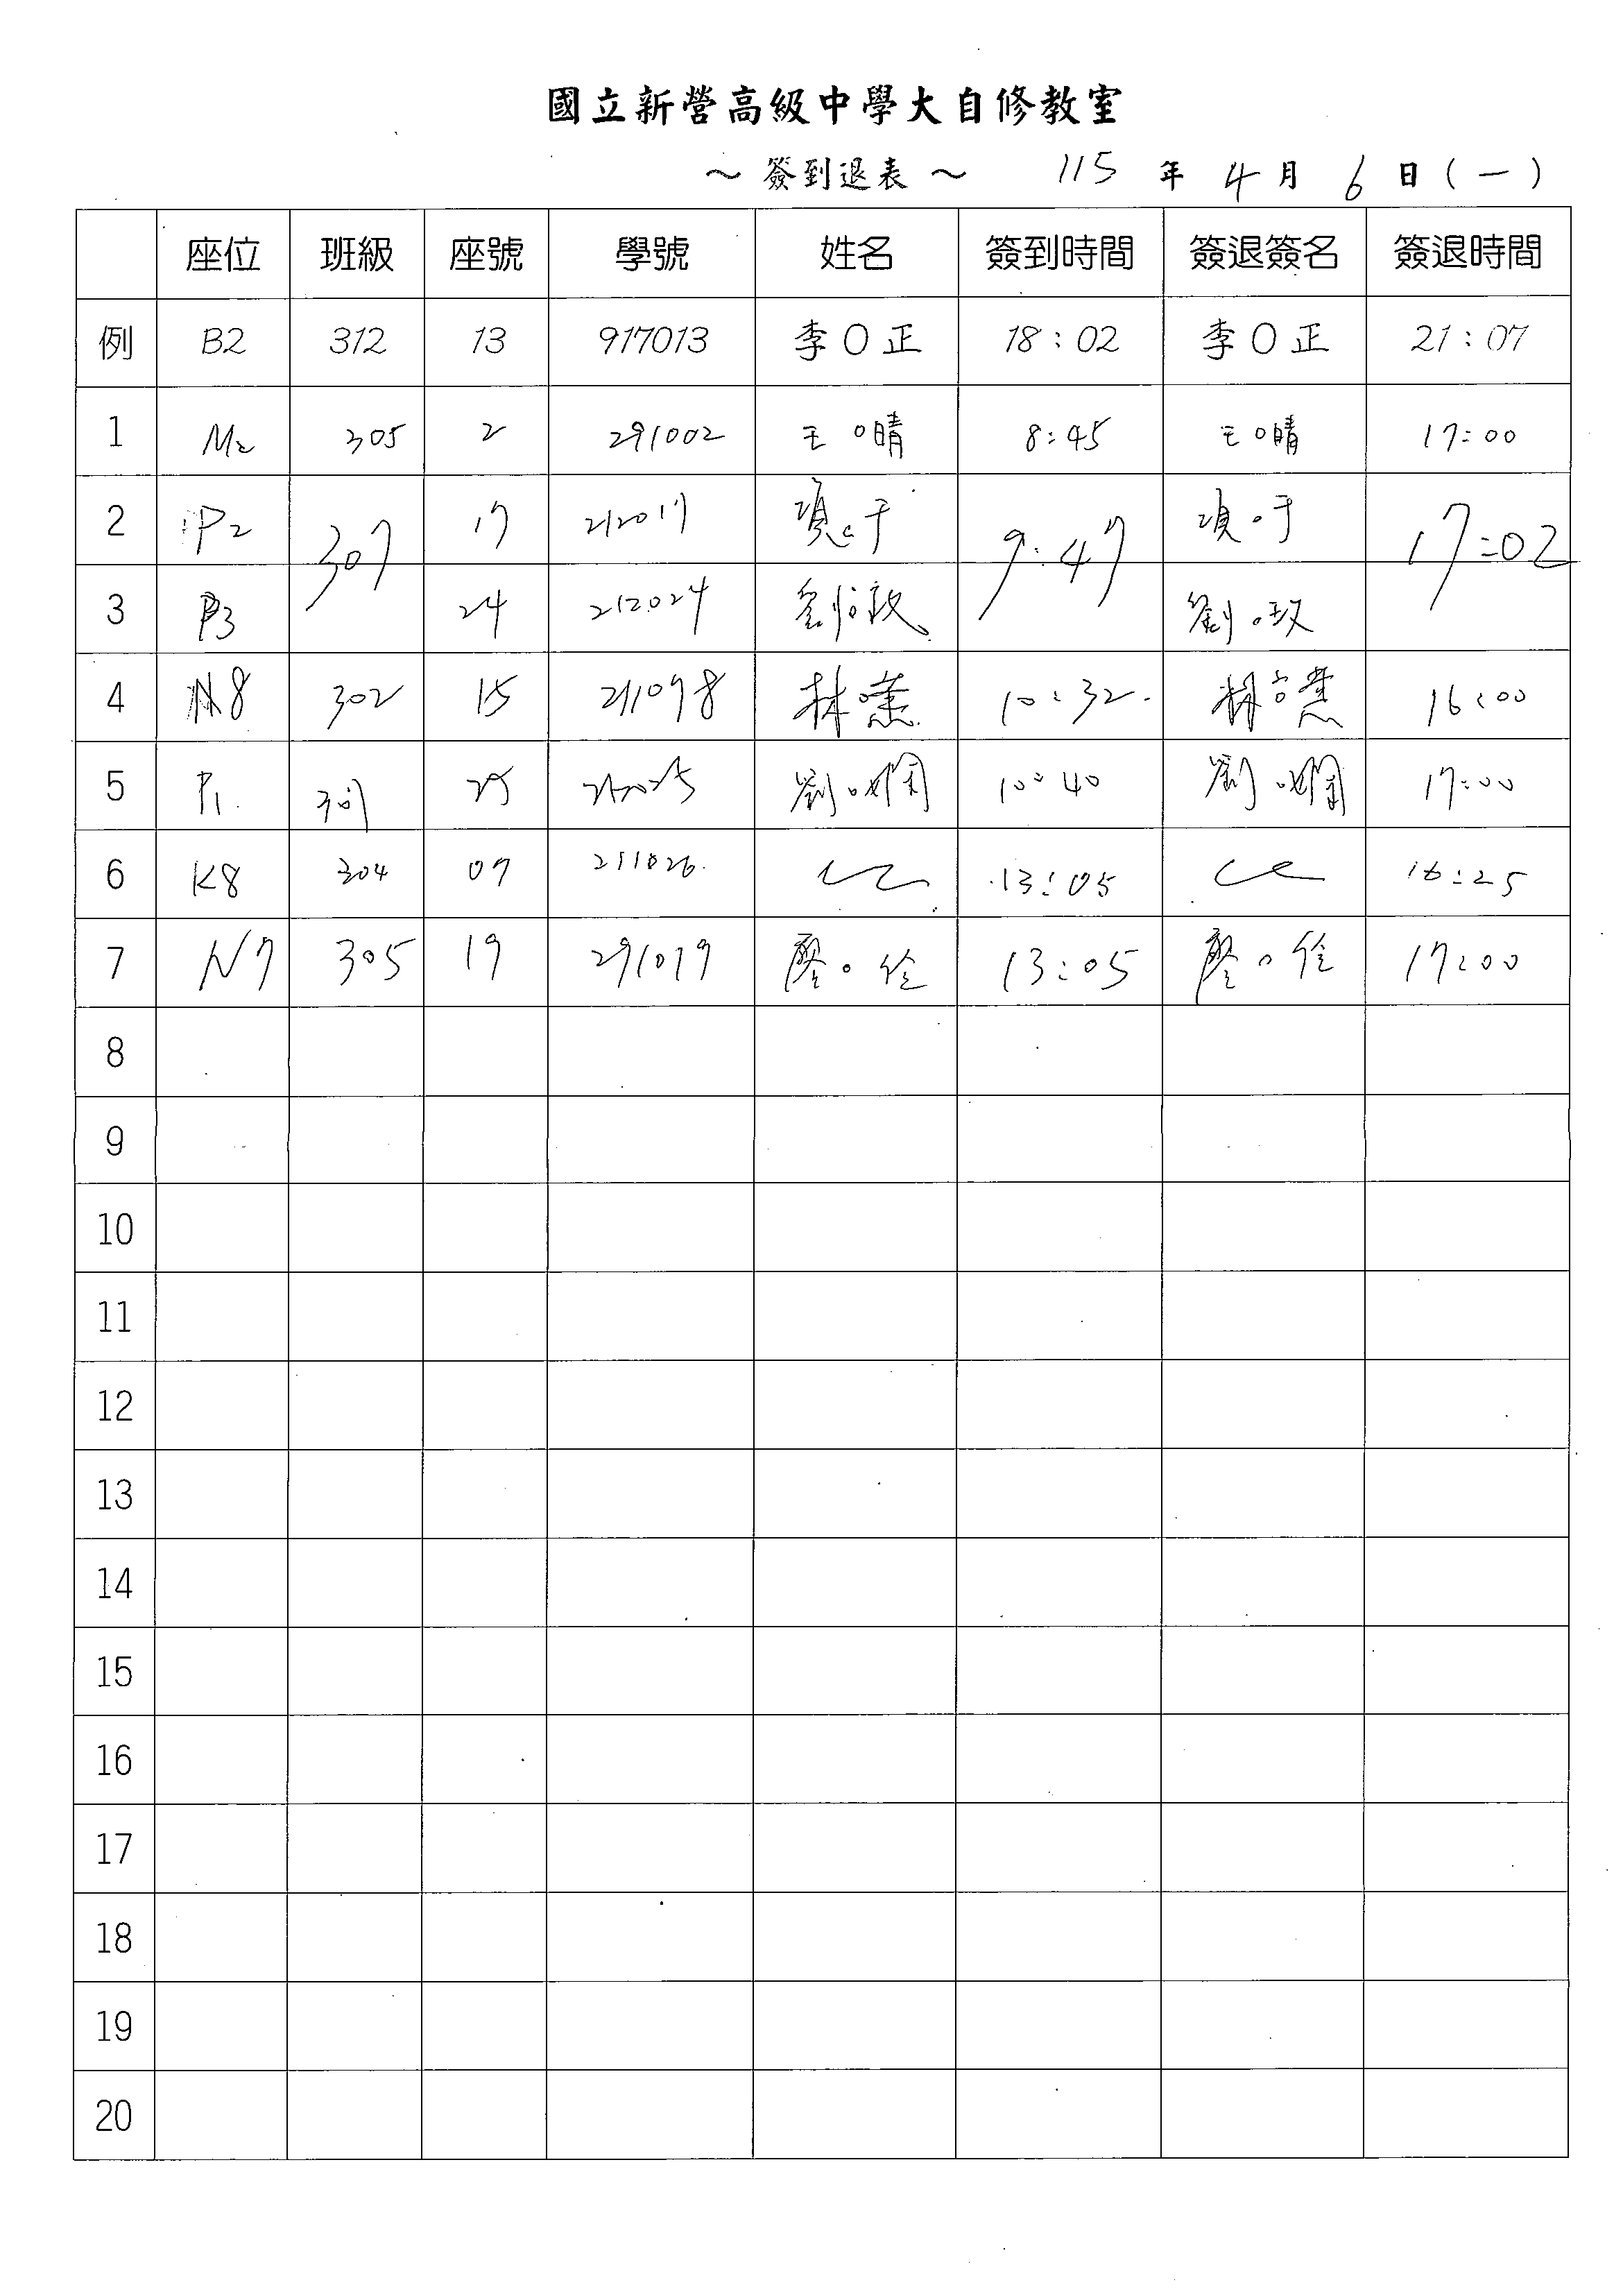 國立新營高級中學大自修教室
～ 簽到退表 ～ 115 年 4 月 6 日 ( 一 )
座位 班級 座號 學號 姓名 簽到時間 簽退簽名 簽退時間
例 B2 312 13 917013 李 O 正 18 : 02 李 O 正 21 : 07
1 M2 305 2 291002 王 O 晴 8:45 王 O 晴 17:00
2 P2 307 17 212017 項 O 于 9:47 項 O 于 17:02
3 P3 24 212024 劉 O 玫 劉 O 玫
4 N8 302 15 211098 林 O 蕙 10:32 林 O 蕙 16:00
5 P1 307 25 212025 劉 O 嫻 10:40 劉 O 嫻 17:00
6 K8 304 07 211026 13:05 16:25
7 N7 305 19 291019 廖 O 佺 13:05 廖 O 佺 17:00
8
9
10
11
12
13
14
15
16
17
18
19
20